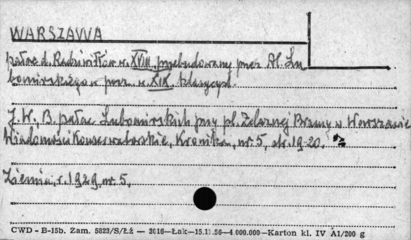 WARSZAWA
pałac d. Radziwiłłów w. XVIII, przebudowany przez Al. Lu
bomirskiego w pocz. w. XIX klasycyst.
J. W. B. pałac Lubomirskich przy pl. Żelaznej Bramy w Warszawie
Wiadomości Konserwatorskie, Kronika, nr. 5, str. 19-20.
Ziemia, r. 1929, nr. 5.
CWD - B-15b. Zam. 5823/S/Łż — 3016—Łak—15.11.50—4.000.000—Karton kl. IV A1/200 g